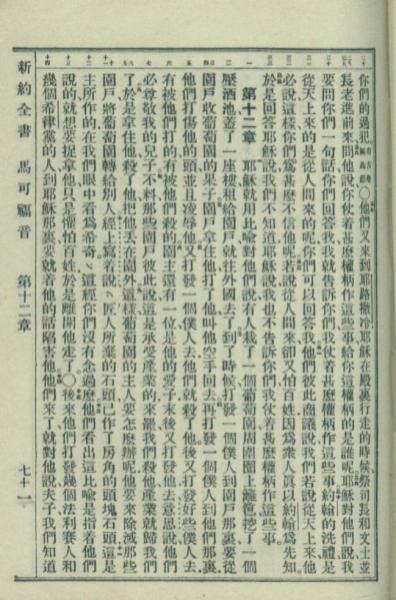 你們的過犯〇他們又來到耶路撒冷耶穌在殿裏行走的時候祭司長和文士並
長老進前來問他說你仗着甚麼權柄作這些事給你這權柄的是誰呢耶穌對他們說我
要問你們一句話你們回答我我就告訴你們我仗着甚麼權柄作這些事約翰的洗禮是
從天上來的是從人間來的呢你們可以回答我他們彼此商議說我們若說從天上來他
必說這樣你們爲甚麼不信他呢若說從人間來卻又怕百姓因爲衆人眞以約翰爲先知
於是回答耶穌說我們不知道耶穌說我也不告訴你們我仗着甚麼權柄作這些事
第十二章 耶穌就用比喩對他們說有人栽了一個葡萄園周圍圈上籬笆挖了一個
壓酒池蓋了一座樓租給園戶就往外國去了到了時候打發一個僕人到園戶那裏要從
園戶收葡萄園的果子園戶拿住他打了他叫他空手回去再打發一個僕人到他們那裏
他們打傷他的頭並且凌辱他又打發一個僕人去他們就殺了他後又打發好些僕人去
有被他們打的有被他們殺的園主還有一位是他的愛子末後又打發他去意思說他們
必尊敬我的兒子不料那些園戶彼此說這是承受產業的來罷我們殺他產業就歸我們
了於是拿住他殺了他把他丟在園外這樣葡萄園的主人要怎麼辦呢他要來除滅那些
園戶將葡萄園轉給別人經上寫着說匠人所棄的石頭已作了房角的頭塊石頭這是
主所作的在我們眼中看爲希奇這經你們沒有念過麼他們看出這比喩是指着他們
說的就想要捉拿他只是懼怕百姓於是離開他走了〇後來他們打發幾個法利賽人和
幾個希律黨的人到耶穌那裏要就着他的話陷害他他們來了就對他說夫子我們知道
新約全書 馬可福音 第十二章 七十一